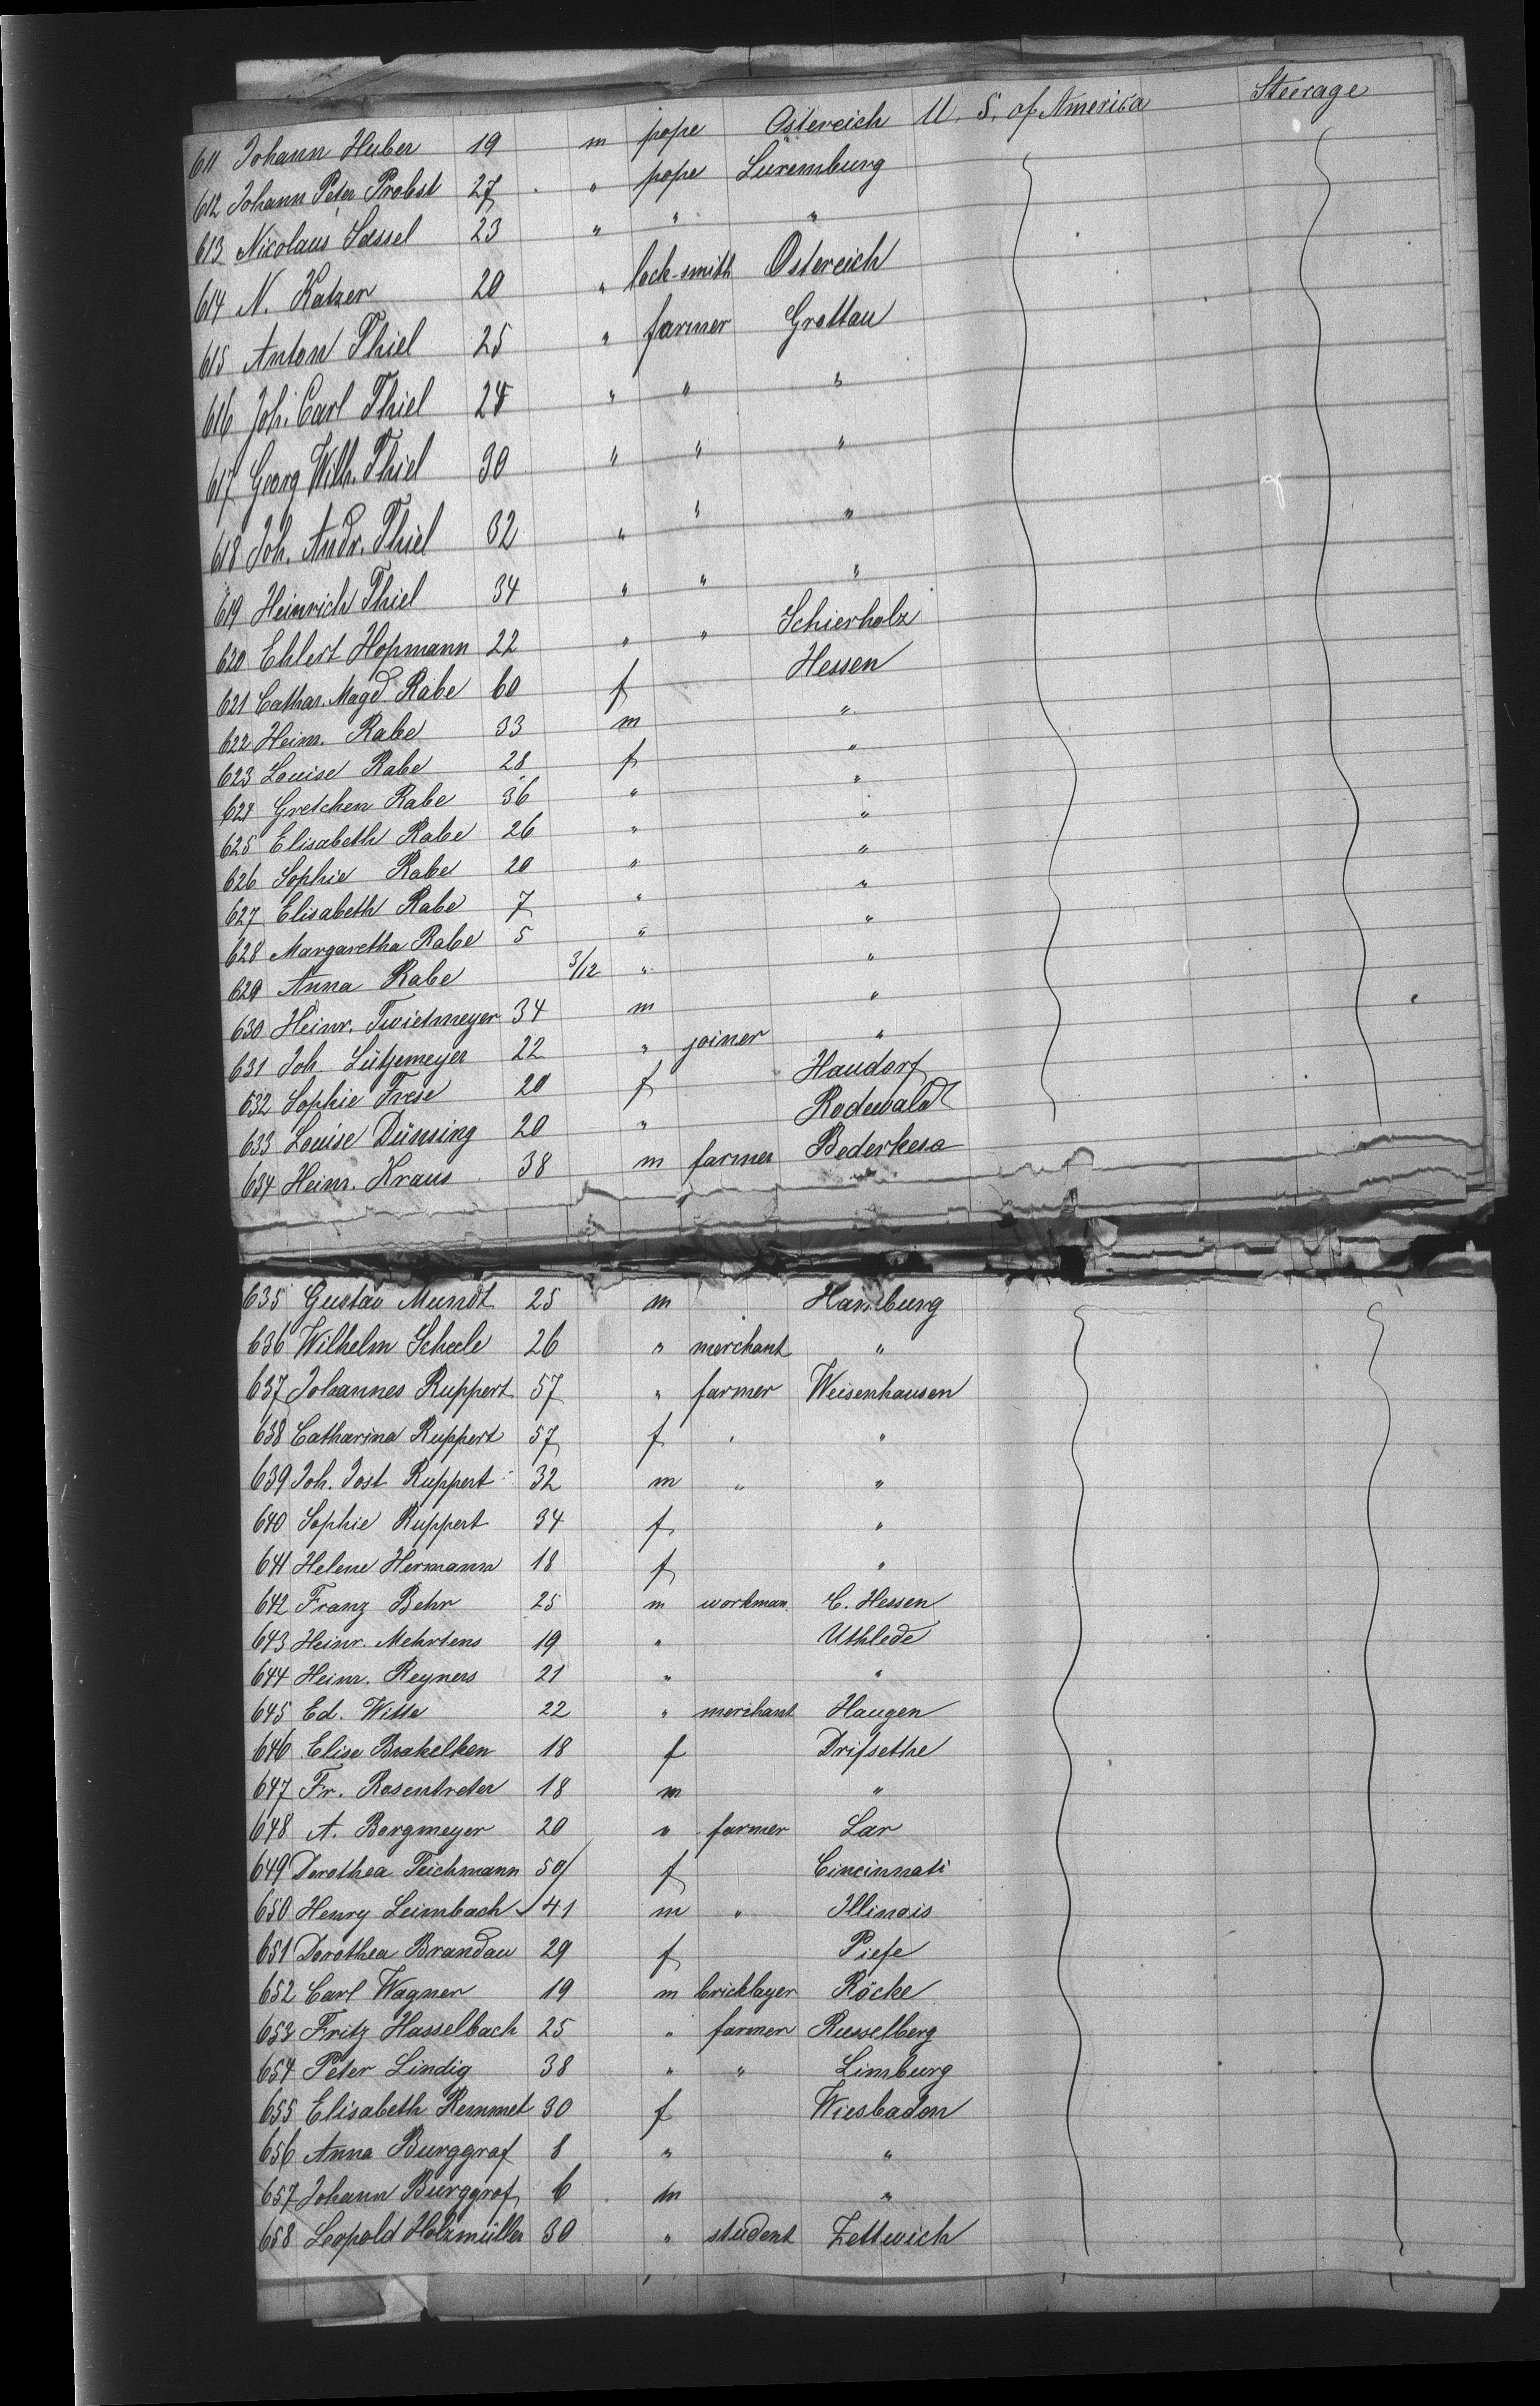 611 Johann Huber 19 m pope Östereich U. S. of America Steerage
612 Johann Peter Probst 27 " pope Luxemburg
613 Nicolaus Sassel 23 " " "
614 N. Katzer 20 " lock-smith Östereich
615 Anton Thiel 25 " farmer Grottau
616 Joh. Carl Thiel 28 " " "
617 Georg Wilh. Thiel 30 " " "
618 Joh. Andr. Thiel 32 " " "
619 Heinrich Thiel 34 " " "
620 Ehlert Hopmann 22 " " Schierholz
621 Cathar. Magd. Rabe 60 f Hessen
622 Heinr. Rabe 33 m "
623 Louise Rabe 28 f "
624 Gretchen Rabe 36 " "
625 Elisabeth Rabe 26 " "
626 Sophie Rabe 20 " "
627 Elisabeth Rabe 7 " "
628 Margaretha Rabe 5 " "
629 Anna Rabe 3/12 " "
630 Heinr. Twietmeyer 34 m "
631 Joh. Lütjemeyer 22 " joiner "
632 Sophie Frese 20 f Haudorf
633 Louise Dünsing 20 " Rodewald
634 Heinr. Kraus 38 m farmer Bederkesa
635 Gustav Mundt 25 m Hamburg
636 Wilhelm Scheele 26 " merchant "
637 Johannes Ruppert 57 " farmer Weisenhausen
638 Catharina Ruppert 57 f " "
639 Joh. Jost Ruppert 32 m " "
640 Sophie Ruppert 34 f "
641 Helene Hermann 18 f "
642 Franz Behr 25 m workman C. Hessen
643 Heinr. Mehrtens 19 " Uthlede
644 Heinr. Reyners 21 " "
645 Ed. Witte 22 " merchant Haugen
646 Elise Brakelken 18 f Drifsethe
647 Fr. Rosentreter 18 m "
648 A. Borgmeyer 20 " farmer Lar
649 Dorothea Teichmann 50 f Cincinnati
650 Henry Leimbach 41 m " Illinois
651 Dorothea Brandau 29 f Piefe
652 Carl Wagner 19 m bricklayer Röcke
653 Fritz Hasselbach 25 " farmer Russelberg
654 Peter Lindig 38 " " Limburg
655 Elisabeth Remmet 30 f Wiesbaden
656 Anna Burggraf 8 " "
657 Johann Burggraf 6 m "
658 Leopold Holzmüller 30 " student Zettwich